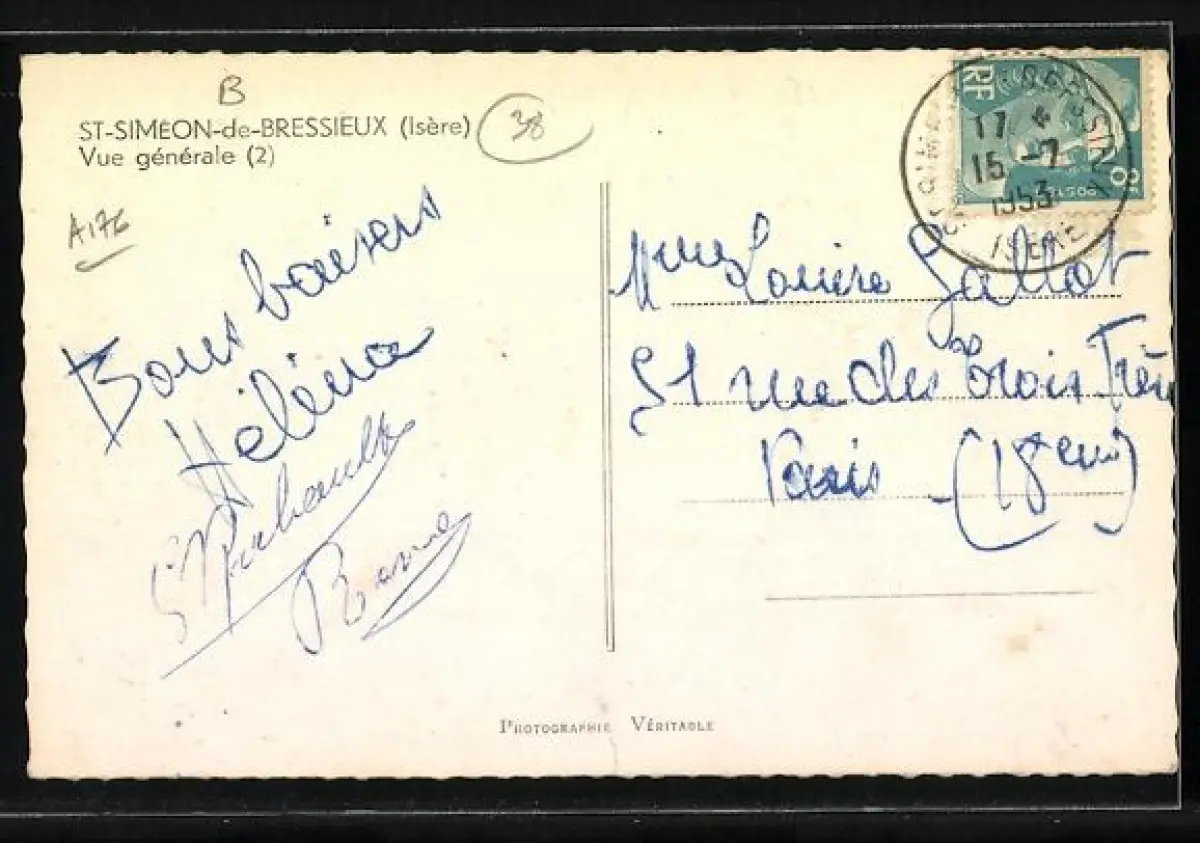 B
ST-SIMEON-de-BRESSIEUX (Isère)
Vue générale (2)
38
A176
Bons baisers
Hélène
RF
8F
POSTES
17
15 -7
1953
ISERE
Louise Gallot
51 rue des Trois Frè
Paris (18eme)
PHOTOGRAPHIE VÉRITABLE